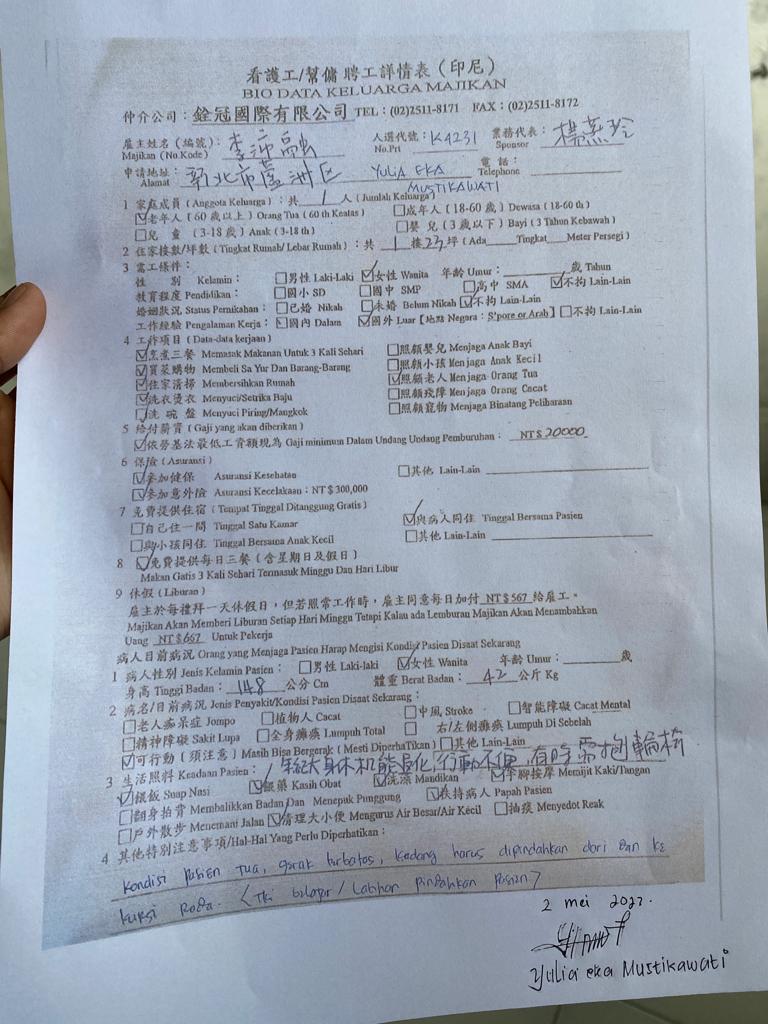 看護工/幫傭 聘工詳情表（印尼）
BIO DATA KELUARGA MAJIKAN
仲介公司：銓冠國際有限公司 TEL：(02)2511-8171 FAX：(02)2511-8172
雇主姓名（編號）：李沛融 人選代號：K4231 業務代表：楊燕玲
Majikan (No.Kode) No.Prt Sponsor
申請地址：新北市蘆洲区 YULIA EKA MUSTIKAWATI 電話：
Alamat Telephone
1 家庭成員（Anggota Keluarga）：共 1 人（Jumlah Keluarga）
☑老年人（60歲以上）Orang Tua (60 th Keatas) □成年人（18-60歲）Dewasa (18-60 th)
□兒 童（3-18歲）Anak (3-18 th) □嬰 兒（3歲以下）Bayi (3 Tahun Kebawah)
2 住家樓數/坪數（Tingkat Rumah/ Lebar Rumah）：共 1 樓 23 坪（Ada Tingkat Meter Persegi）
3 需工條件：
性 別 Kelamin： □男性 Laki-Laki ☑女性 Wanita 年齡 Umur： 歲 Tahun
教育程度 Pendidikan： □國小 SD □國中 SMP □高中 SMA ☑不拘 Lain-Lain
婚姻狀況 Status Pernikahan： □已婚 Nikah □未婚 Belum Nikah ☑不拘 Lain-Lain
工作經驗 Pengalaman Kerja： ☑國內 Dalam ☑國外 Luar【地點 Negara：S'pore or Arab】 □不拘 Lain-Lain
4 工作項目（Data-data kerjaan）
☑烹煮三餐 Memasak Makanan Untuk 3 Kali Sehari □照顧嬰兒 Menjaga Anak Bayi
☑買菜購物 Membeli Sa Yur Dan Barang-Barang □照顧小孩 Menjaga Anak Kecil
☑住家清掃 Membersihkan Rumah ☑照顧老人 Menjaga Orang Tua
☑洗衣燙衣 Menyuci/Setrika Baju □照顧殘障 Menjaga Orang Cacat
☑洗 碗 盤 Menyuci Piring/Mangkok □照顧寵物 Menjaga Binatang Pelibaraan
5 給付薪資（Gaji yang akan diberikan）
☑依勞基法最低工資額現為 Gaji minimum Dalam Undang Undang Pemburuhan： NT$ 20000
6 保險（Asuransi）
☑參加健保 Asuransi Kesehatan □其他 Lain-Lain
☑參加意外險 Asuransi Kecelakaan：NT$300,000
7 免費提供住宿（Tempat Tinggal Ditanggung Gratis）
□自己住一間 Tinggal Satu Kamar ☑與病人同住 Tinggal Bersama Pasien
□與小孩同住 Tinggal Bersama Anak Kecil □其他 Lain-Lain
8 ☑免費提供每日三餐（含星期日及假日）
Makan Gatis 3 Kali Sehari Termasuk Minggu Dan Hari Libur
9 休假（Liburan）
雇主於每禮拜一天休假日，但若照常工作時，雇主同意每日加付 NT$567 給雇工。
Majikan Akan Memberi Liburan Setiap Hari Minggu Tetapi Kalau ada Lemburan Majikan Akan Menambahkan
Uang NT$667 Untuk Pekerja
病人目前病況 Orang yang Menjaga Pasien Harap Mengisi Kondisi Pasien Disaat Sekarang
1 病人性別 Jenis Kelamin Pasien： □男性 Laki-laki ☑女性 Wanita 年齡 Umur： 歲
身高 Tinggi Badan： 148 公分 Cm 體重 Berat Badan： 42 公斤 Kg
2 病名/目前病況 Jenis Penyakit/Kondisi Pasien Disaat Sekarang：
□老人痴呆症 Jompo □植物人 Cacat □中風 Stroke □智能障礙 Cacat Mental
□精神障礙 Sakit Lupa □全身癱瘓 Lumpuh Total □ 右/左側癱瘓 Lumpuh Di Sebelah
☑可行動（須注意）Masih Bisa Bergerak (Mesti DiperhaTikan) □其他 Lain-Lain
3 生活照料 Keadaan Pasien： 年紀大身体机能退化,行動不便,有時需抱輪椅
☑餵飯 Suap Nasi ☑餵藥 Kasih Obat ☑洗澡 Mandikan ☑手腳按摩 Memijat Kaki/Tangan
□翻身拍背 Membalikkan Badan Dan Menepuk Punggung ☑扶持病人 Papah Pasien
□戶外散步 Menemani Jalan ☑清理大小便 Mengurus Air Besar/Air Kecil □抽痰 Menyedot Reak
4 其他特別注意事項/Hal-Hal Yang Perlu Diperhatikan：
Kondisi pasien Tua, gerak terbatas, kadang harus dipindahkan dari dan ke
kursi Roda. (TKI belajar / Latihan pindahkan pasien)
2 mei 2022.
Yulia eka Mustikawati